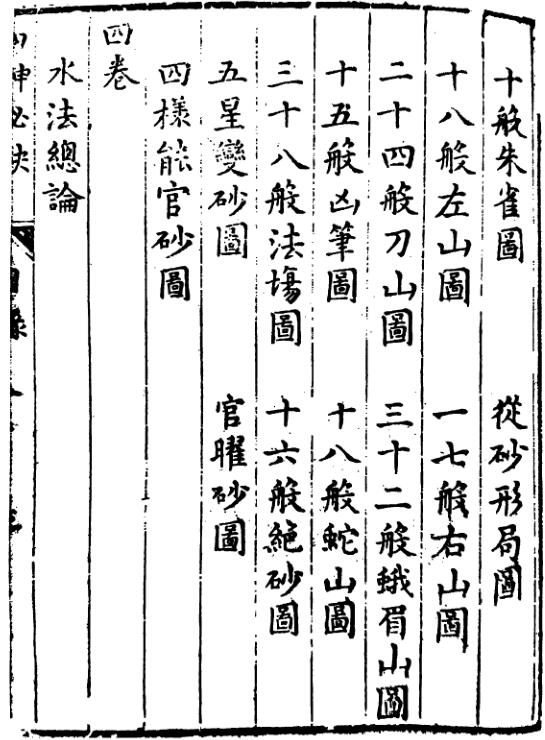 十般朱雀圖　從砂形局圖
十八般左山圖　一七般右山圖
二十四般刀山圖　三十二般蛾眉山圖
十五般凶筆圖　十八般蛇山圖
三十八般法塲圖　十六般絕砂圖
五星變砂圖　官曜砂圖
四樣能官砂圖
四卷
水法總論